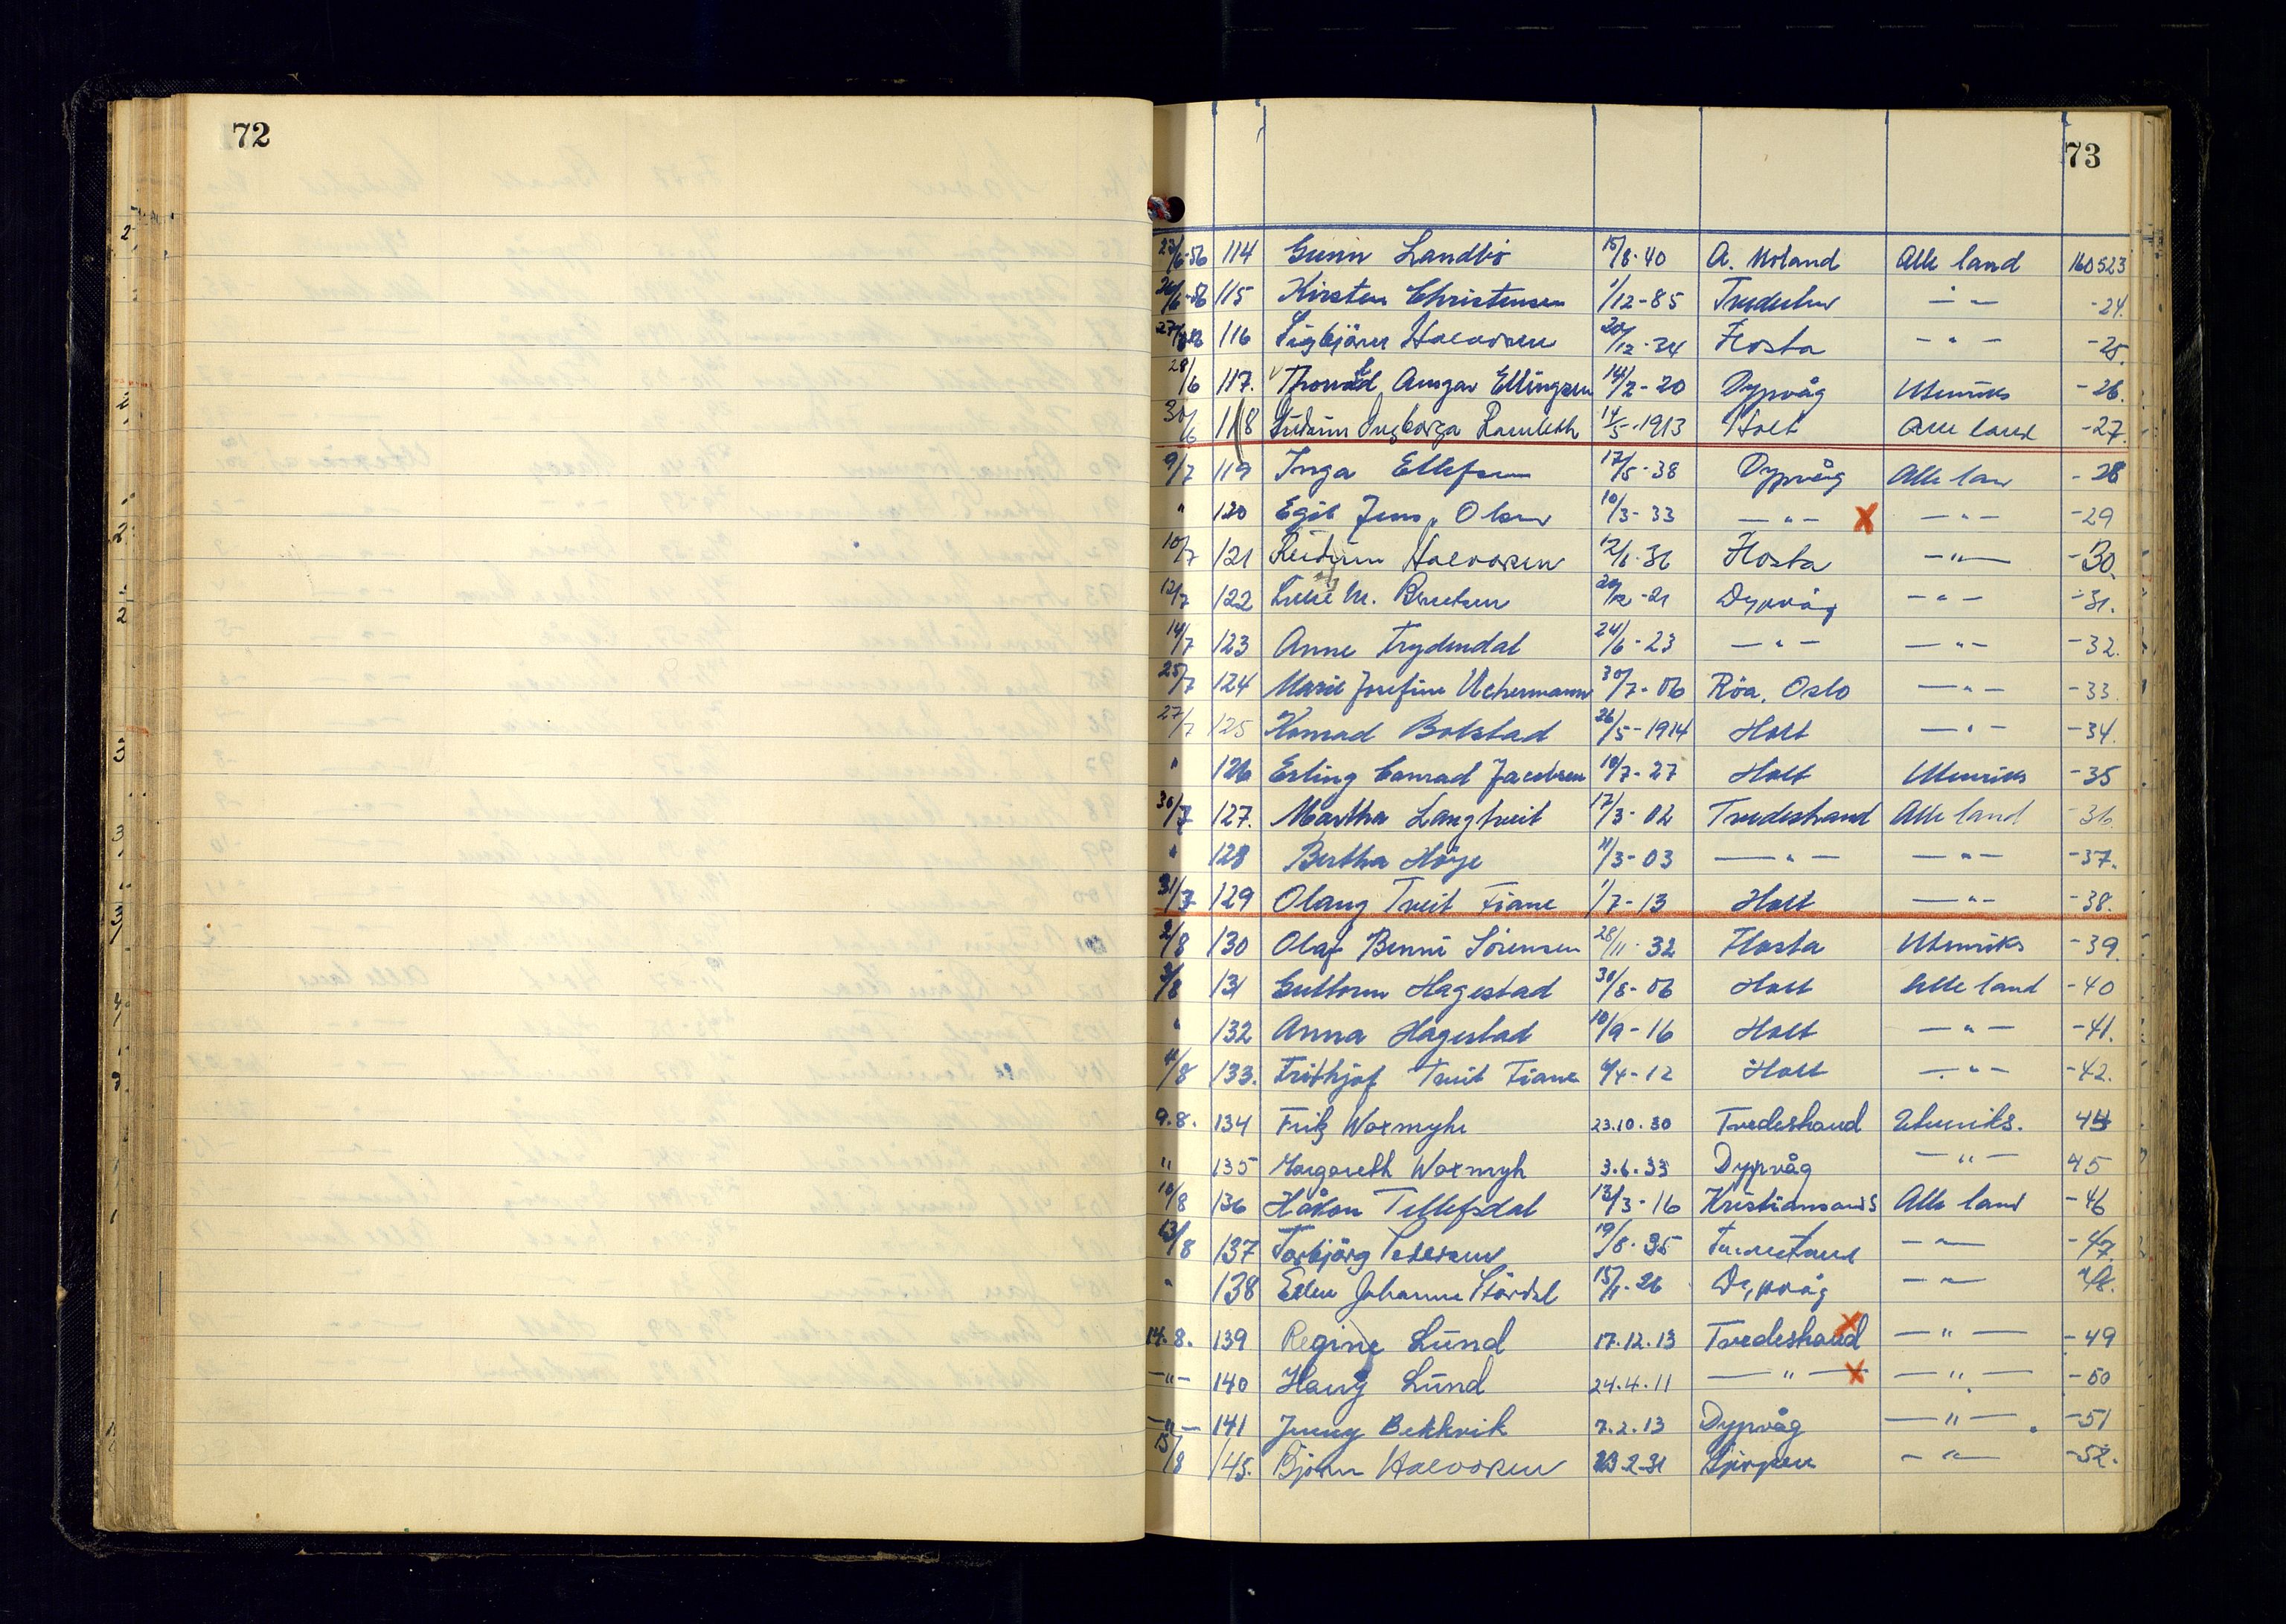 72
73
23/6-56 114 Gunn Landbö 15/8-40 A. Moland Alle land 160523
26/6-56 115 Kirsten Christensen 1/12-85 -"- -24.
27/6-56 116 Sigbjörn Halvorsen 20/12-34 Flosta -"- -25.
28/6 117. Thorvald Ansgar Ellingsen 14/2-20 Dypvåg Utenriks -26.
30/6 118 Gudrun Ingborga Ramleth 14/5-1913 Holt Alle land -27.
9/7 119 Inga Ellefsen 17/5-38 Dypvåg Alle lan -28
" 120 Egil Jens Olsen 10/3-33 -"- X -"- -29
10/7 121 Reidun Halvorsen 12/6-36 Flosta -"- -30.
12/7 122 M. Berntsen -21 Dypvåg -"- -31.
14/7 123 Anne Trydendal 24/6-23 -"- -"- -32.
25/7 124 Marie Josefine Uchermann 30/7-06 Röa, Oslo -"- -33.
27/7 125 Konrad Bolstad 26/5-1914 Holt -"- -34.
" 126 Erling Conrad Jacobsen 18/7-27 Holt Utenriks -35
30/7 127. Martha Langtveit 17/3-02 Tvedestrand Alle land -36.
" 128 Bertha Höye 11/3-03 -"- -"- -37.
31/7 129 Olaug Tveit Fiane 1/7-13 Holt -"- -38.
2/8 130 Olaf Benni Sörensen 28/11-32 Flosta Utenriks -39.
3/8 131 Guttorm Hagestad 30/8-06 Holt Alle land -40
" 132 Anna Hagestad 10/9-16 Holt -"- -41.
4/8 133. Frithjof Tveit Fiane 4-12 Holt -"- -42.
9.8. 134 Fritz Waxmyhr 23.10.30 Tvedestrand Utenriks. 44
" 135 Margareth Waxmyh 3.6.33 Dypvåg -"- 45
10/8 136 Håkon Tellefsdal 13/3-16 Kristiansand S Alle land -46
13/8 137 Torbjörg Pettersen 19/8-35 Tvedestrand -"- -47.
" 138 Ellen Johanne Stördal 15/1-26 Dypvåg -"- 48.
14.8. 139 Regine Lund 17.12.13 Tvedestrand X -"- -49
-"- 140 Lund 24.4.11 -"- X -"- -50
-"- 141 Jenny Bekkvik 7.2.13 Dypvåg -"- -51
15/8 145. Björn Halvorsen 23.2.31 Gjerpen -"- -52.